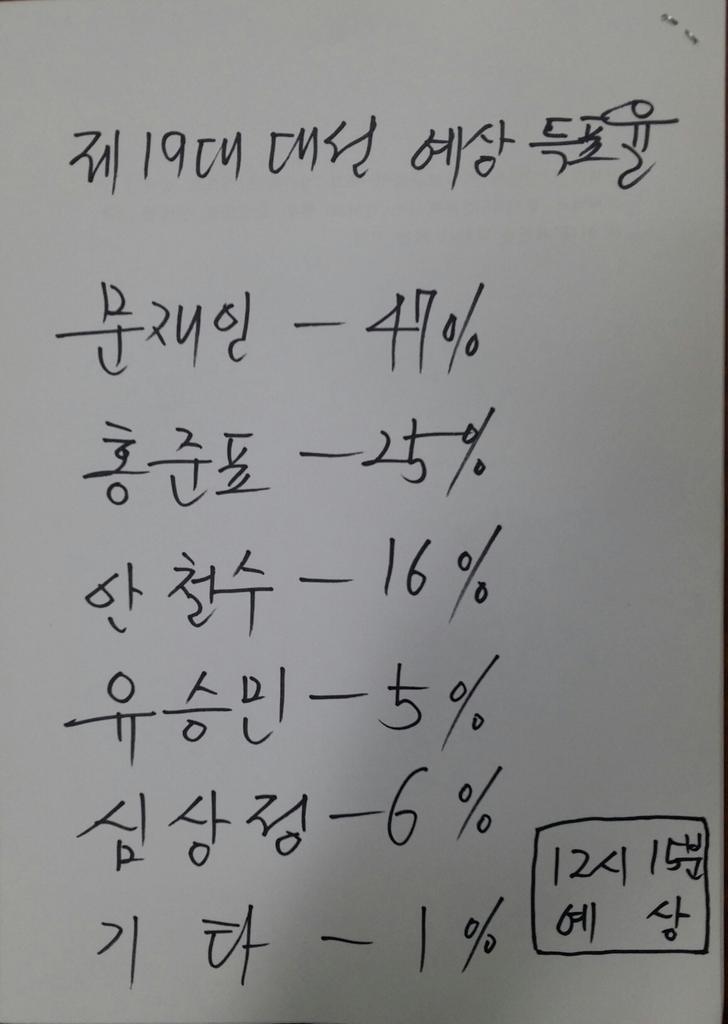 제 19대 대선 예상 득표율
문재인 - 47%
홍준표 - 25%
안철수 - 16%
유승민 - 5%
심상정 - 6%
기타 - 1%
12시 15분
예상